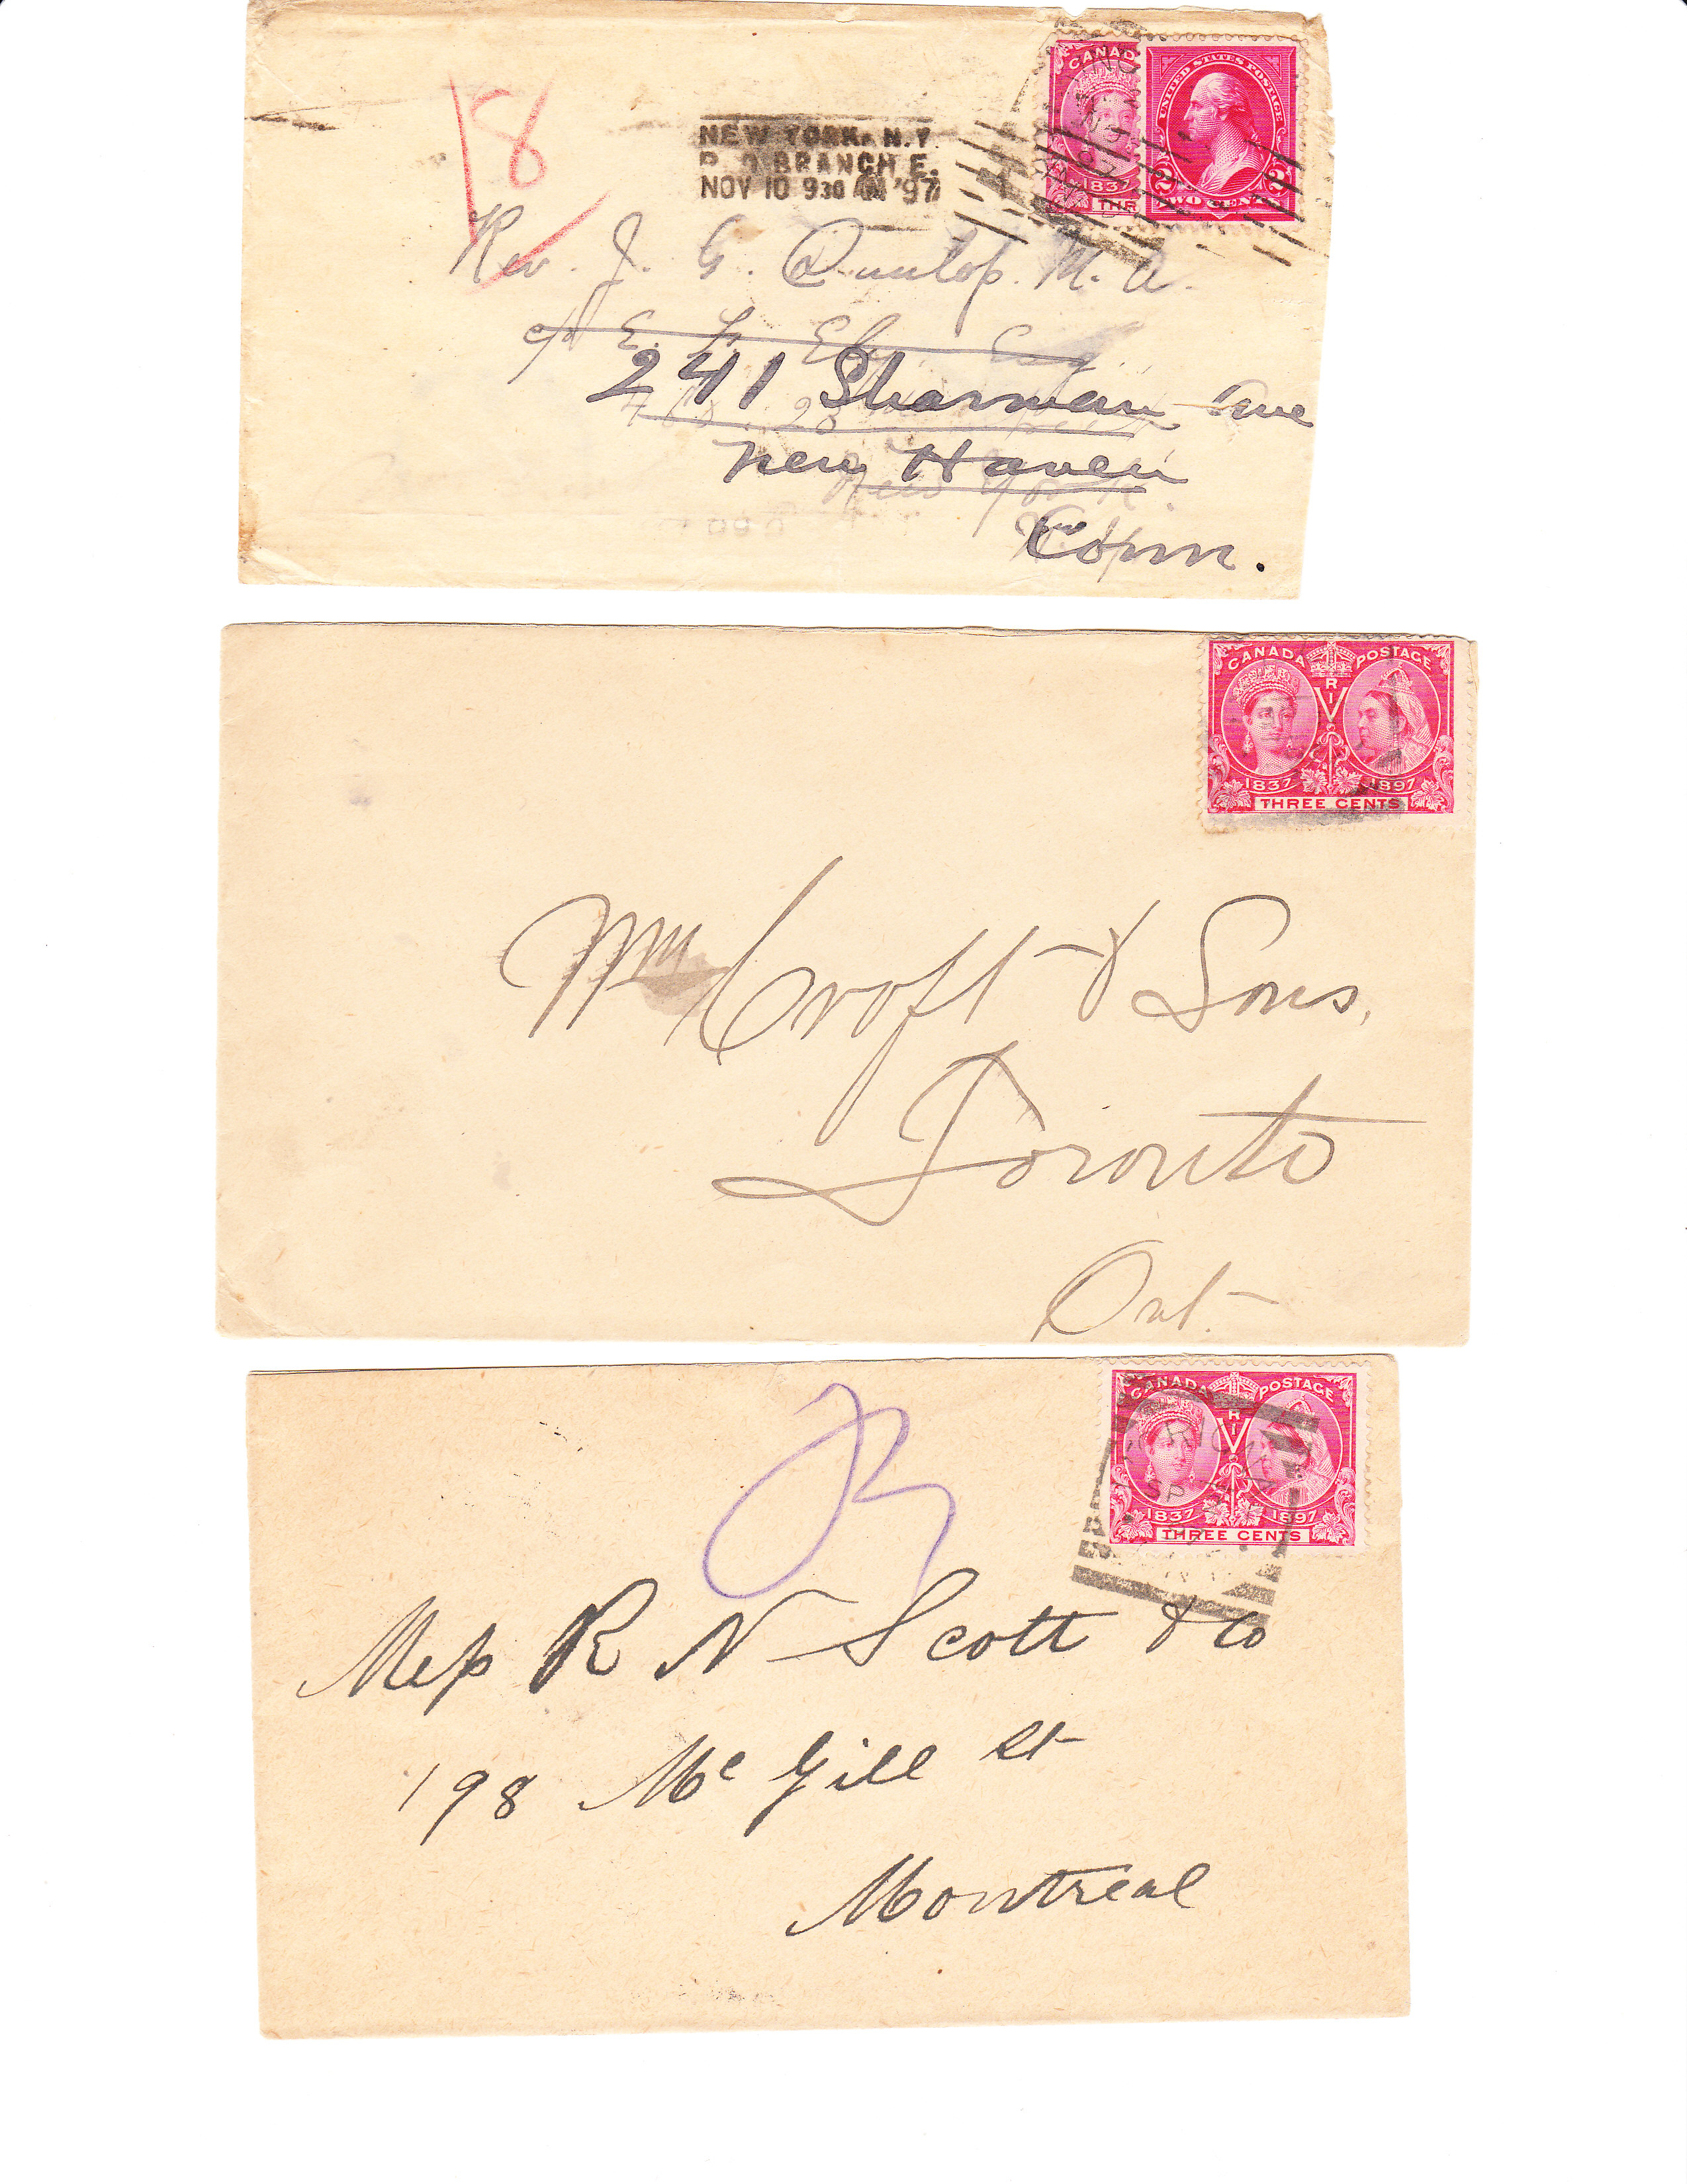 18
CANAD
1837
THR
UNITED STATES POSTAGE
2 2
TWO CENTS
NEW YORK, N.Y.
P. O. BRANCH E.
NOV 10 930 AM '97
Rev. J. G. Dunlop. M. A.
c/o E. 
241 Sharman Ave
New Haven
New York.
Conn.
CANADA POSTAGE
V R I
1837 1897
THREE CENTS
Wm Croft & Sons,
Toronto
Ont.
CANADA POSTAGE
V R I
1837 1897
THREE CENTS
SP
Mess R N Scott & Co
198 McGill St
Montreal